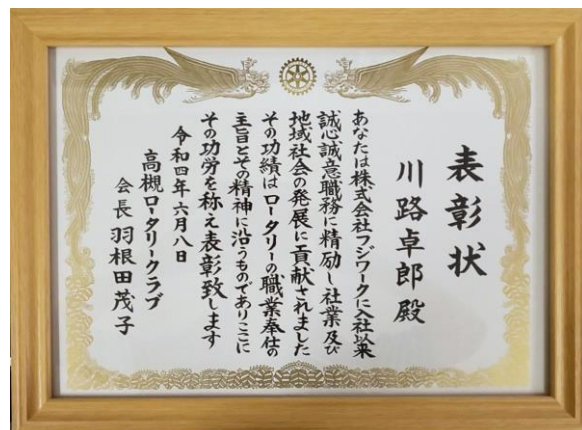 表彰状
川路卓郎殿
あなたは株式会社フジワークに入社以来
誠心誠意職務に精励し社業及び
地域社会の発展に貢献されました
その功績はロータリーの職業奉仕の
主旨とその精神に沿うものでありここに
その功労を称え表彰致します
令和四年六月八日
高槻ロータリークラブ
会長 羽根田茂子